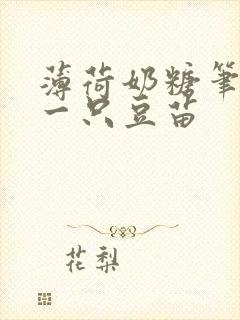 薄荷奶糖笔
一只豆苗
花梨